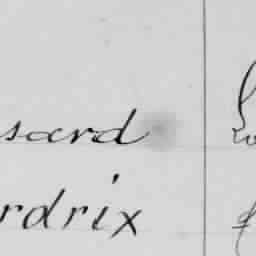 sard
rdrix